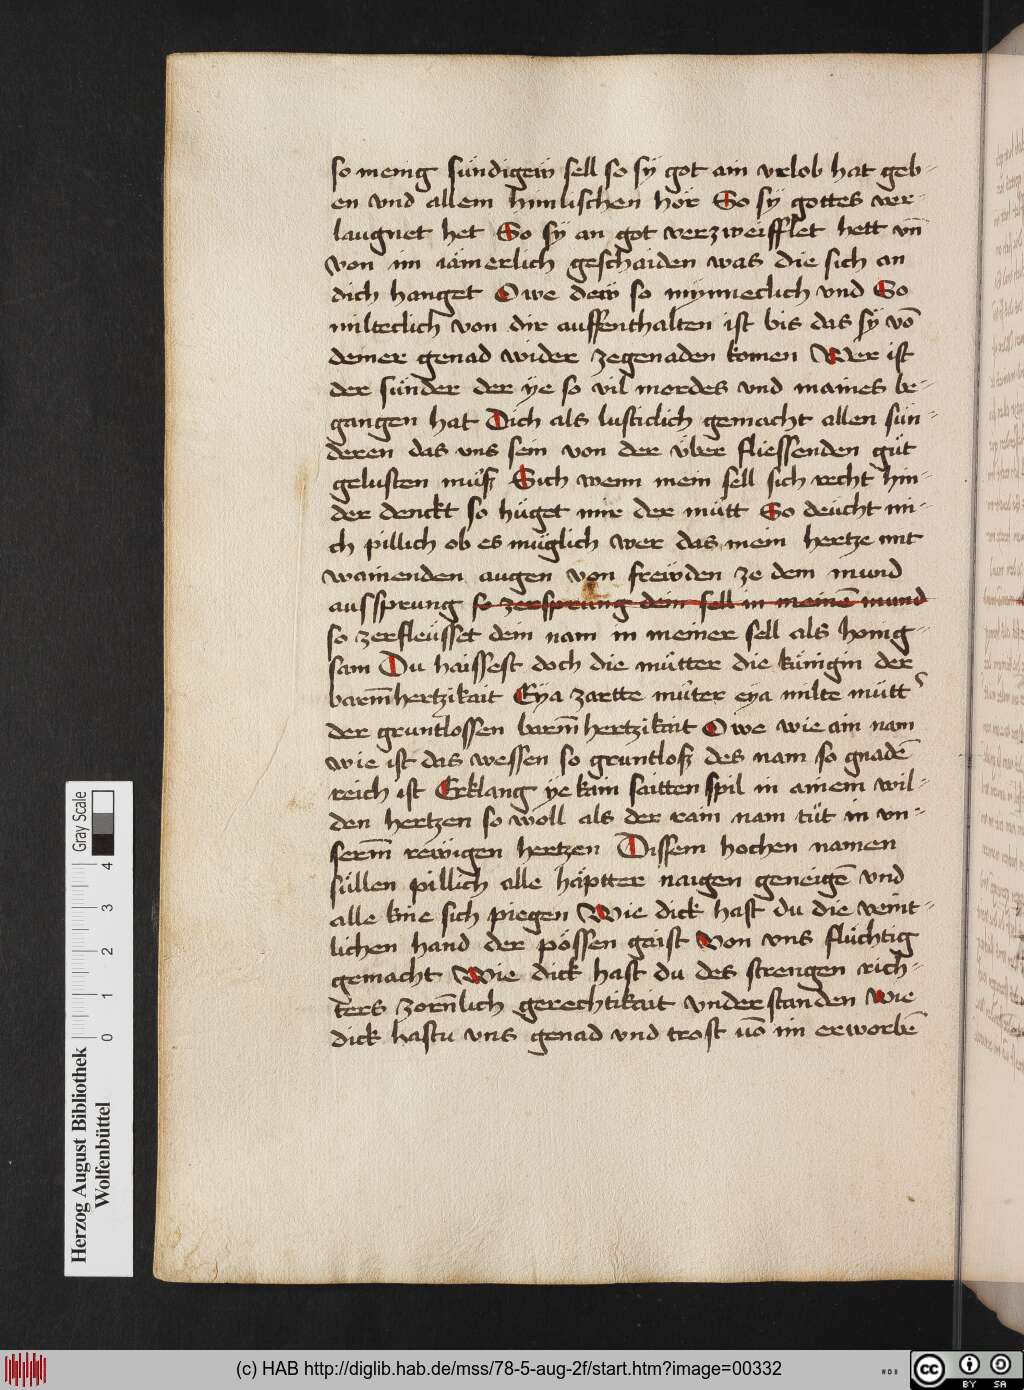 so menig sündigeÿ sell so sÿ got ain vrlob hat geb-
en vnd allem himlischen hör So sÿ gottes ver-
laugnet het So sÿ an got verzweifflet hett vn̄
von im iämerlich geschaiden was die sich an
dich hanget Owe deiÿ so mynneclich vnd So
milteclich von dir auffenthalten ist bis das sÿ vō
deiner genad wider zegenaden komen Wer ist
der sünder der ÿe so vil mordes vnd maines be-
gangen hat Dich als lusticlich gemacht allen sün-
deren das vns sein von der über fliessenden güt
gelusten müſz Sich wenn mein sell sich recht hin-
der denckt so hüget mir der mütt So deücht mi-
ch pillich ob es müglich wer das mein hertze mit
wainenden augen von freẅden ze dem mund
aussprung so zersprung dein sell in meinē mund
so zerfleüsset dein nam in meiner sell als honig-
sam Du haissest doch die mütter die künigin der
barm̄hertzikait Eya zartte müter eya milte mütt
der gruntlossen barm̄hertzikait Owe wie ain nam
wie ist das wessen so gruntloſz des nam so gnadē
reich ist Erklang ye kain saitten spil in ainem wil-
den hertzen so woll als der rain nam tüt in vn-
serm̄ reẅigen hertzen Dissem hochen namen
süllen pillich alle häptter naigen geneigē vnd
alle knie sich piegen Wie dick hast du die veint-
lichen hand der pössen gaist von vns flüchtig
gemacht Wie dick hast du des strengen rich-
ters zorn̄lich gerechtikait vnderstanden wie
dick hastu vns genad vnd trost uō im erworbē
Gray Scale
0 1 2 3 4
Herzog August Bibliothek
Wolfenbüttel
(c) HAB http://diglib.hab.de/mss/78-5-aug-2f/start.htm?image=00332
WDB
cc
BY SA